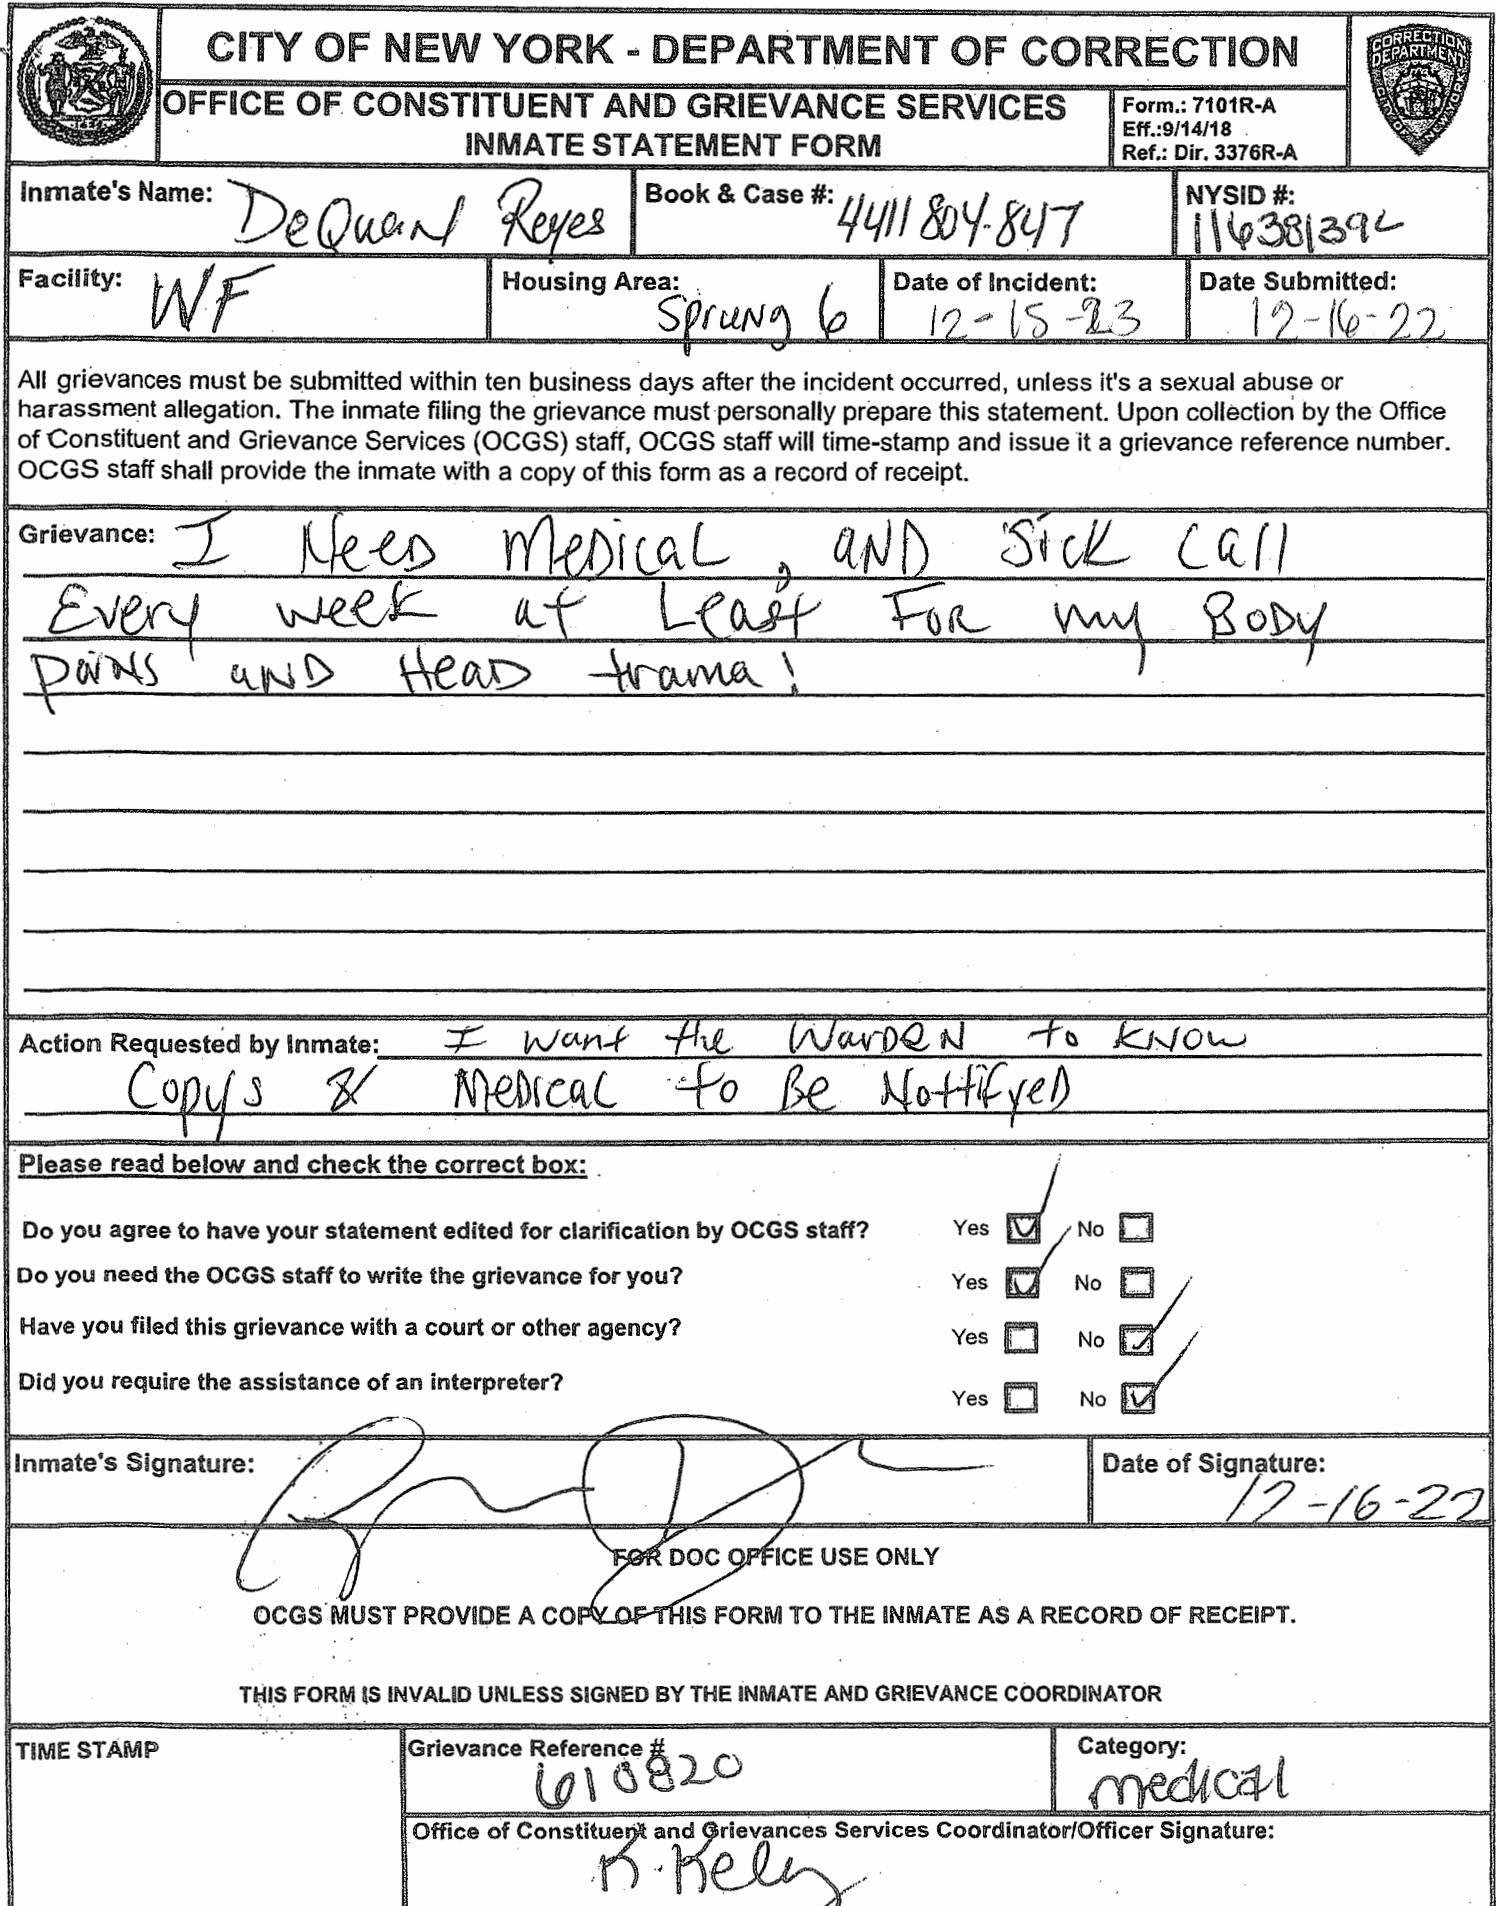 CITY OF NEW YORK - DEPARTMENT OF CORRECTION
CORRECTION
DEPARTMENT
CITY OF NEW YORK
OFFICE OF CONSTITUENT AND GRIEVANCE SERVICES
INMATE STATEMENT FORM
Form.: 7101R-A
Eff.:9/14/18
Ref.: Dir. 3376R-A
Inmate's Name: DeQuan Reyes
Book & Case #: 4411804847
NYSID #: 11638139L
Facility: WF
Housing Area: Sprung 6
Date of Incident: 12-15-23
Date Submitted: 12-16-22
All grievances must be submitted within ten business days after the incident occurred, unless it's a sexual abuse or
harassment allegation. The inmate filing the grievance must personally prepare this statement. Upon collection by the Office
of Constituent and Grievance Services (OCGS) staff, OCGS staff will time-stamp and issue it a grievance reference number.
OCGS staff shall provide the inmate with a copy of this form as a record of receipt.
Grievance: I Need Medical, and Sick call
Every week at Least For my Body
pains and Head trama!
Action Requested by Inmate: I want the Warden to know
Copys & Medical to Be Nottifyed
Please read below and check the correct box:
Do you agree to have your statement edited for clarification by OCGS staff? Yes No
Do you need the OCGS staff to write the grievance for you? Yes No
Have you filed this grievance with a court or other agency? Yes No
Did you require the assistance of an interpreter? Yes No
Inmate's Signature:
Date of Signature: 12-16-22
FOR DOC OFFICE USE ONLY
OCGS MUST PROVIDE A COPY OF THIS FORM TO THE INMATE AS A RECORD OF RECEIPT.
THIS FORM IS INVALID UNLESS SIGNED BY THE INMATE AND GRIEVANCE COORDINATOR
TIME STAMP
Grievance Reference # 610820
Category: medical
Office of Constituent and Grievances Services Coordinator/Officer Signature:
K. Kelly